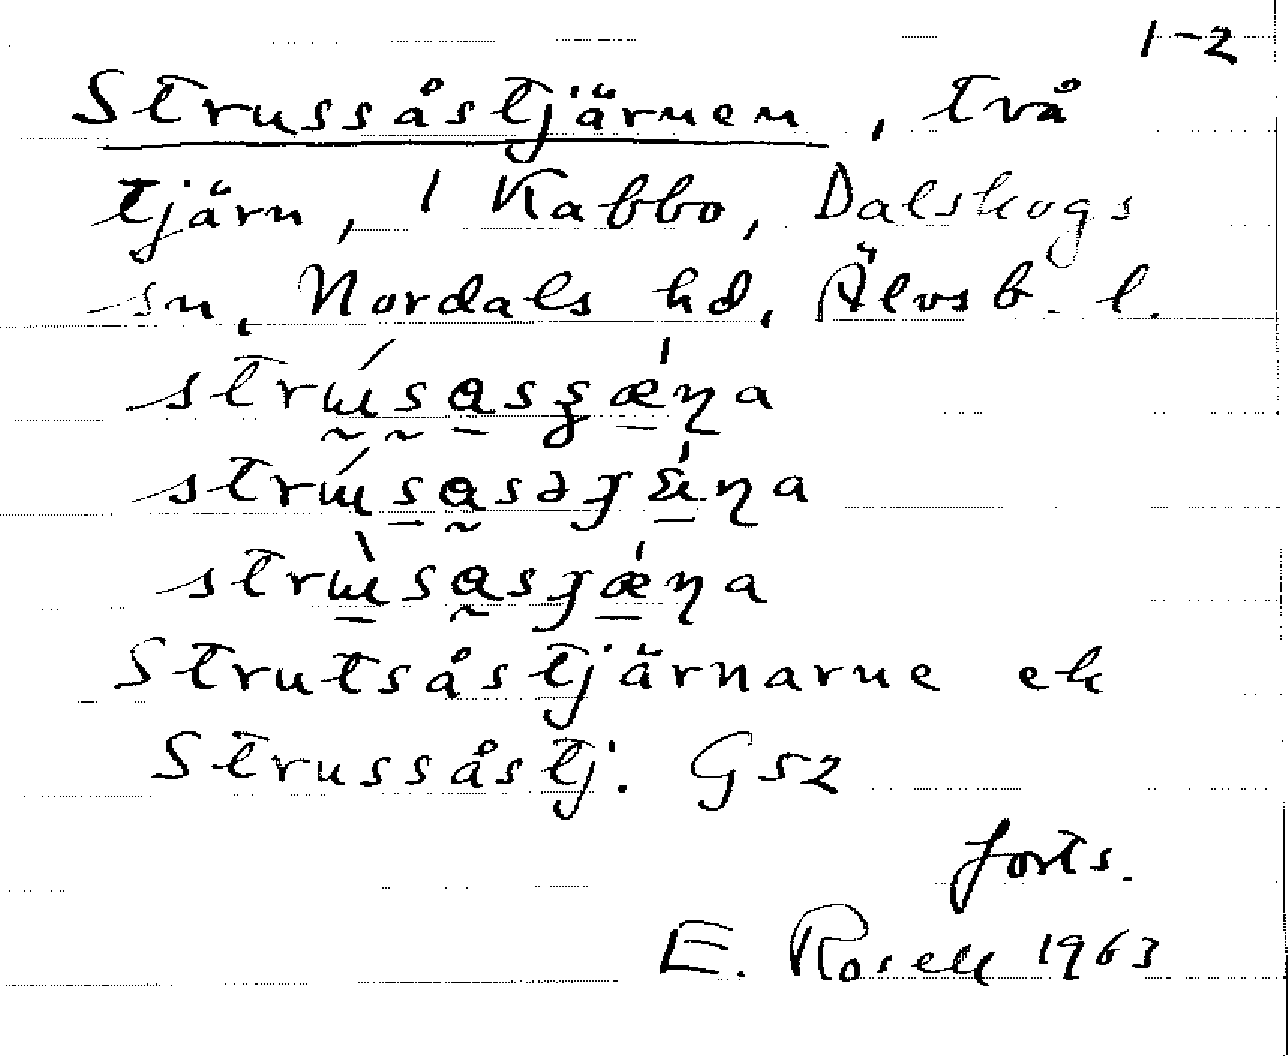 1-2
Strussåstjärnen, två
tjärn, 1 Kabbo, Dalskogs
sn, Nordals hd, Älvsb. l.
Strutsåstjärnarne ek
Strussåstj. G52
forts.
E. Rosell 1963